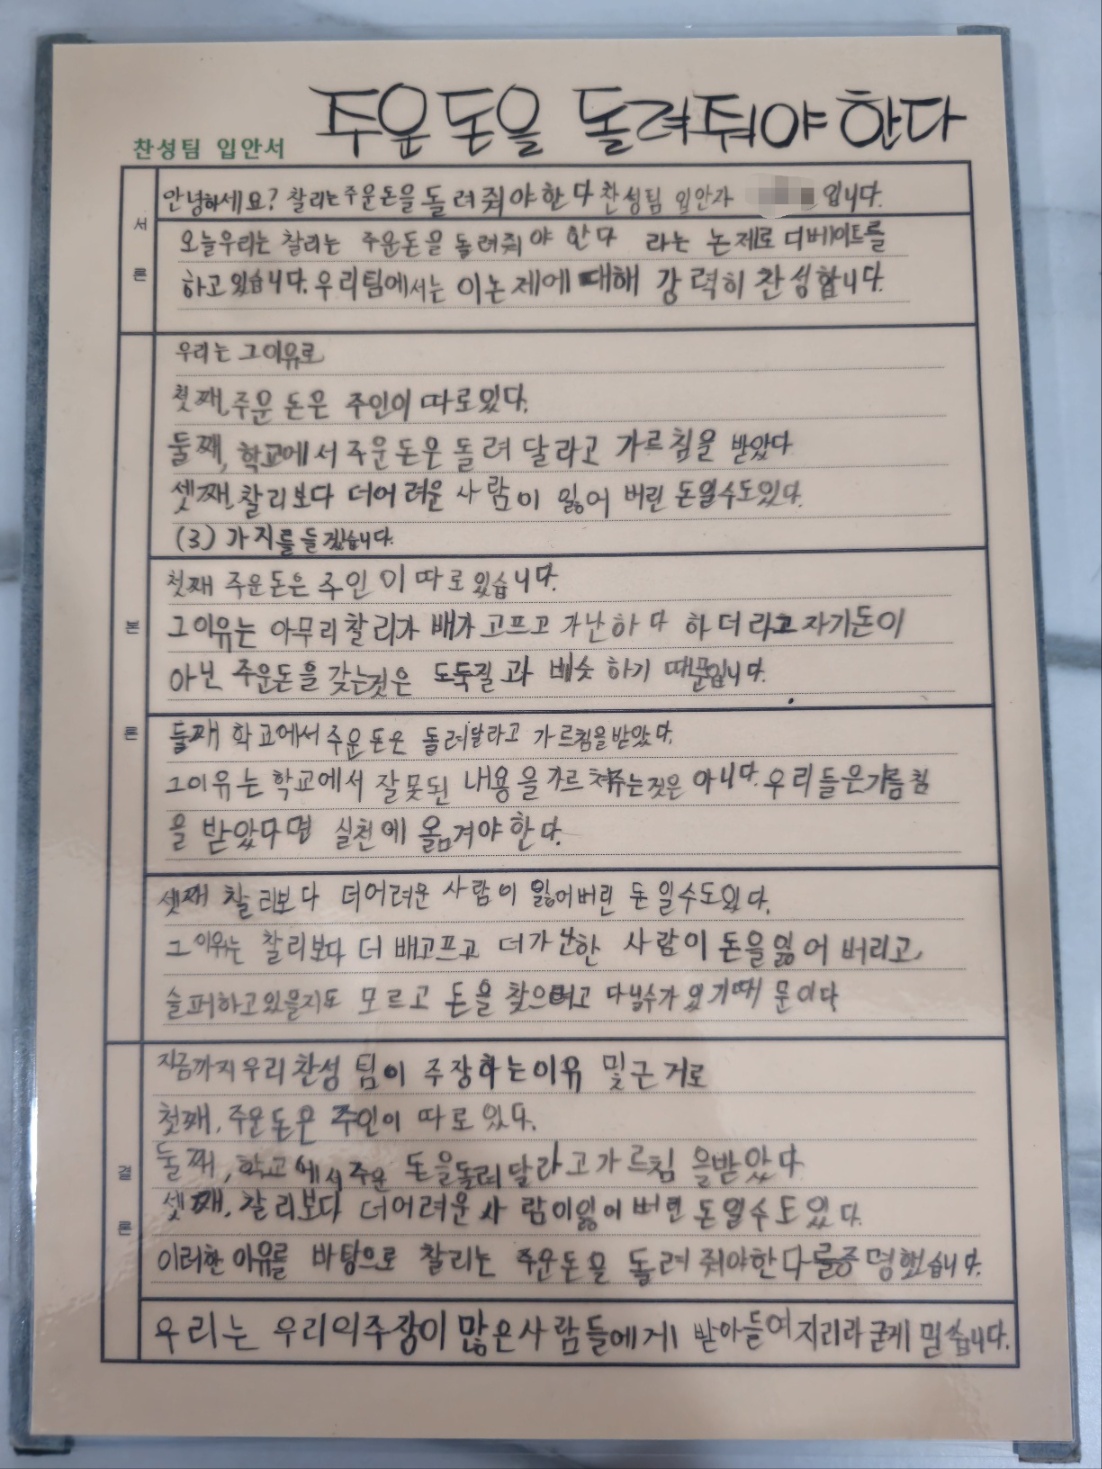 주운돈을 돌려줘야 한다
찬성팀 입안서
안녕하세요? 찰리는주운돈을돌려줘야한다찬성팀 입안자 입니다.
서론
오늘우리는 찰리는 주운돈을 돌려줘야 한다 라는 논제로 디베이트를
하고있습니다. 우리팀에서는 이논제에 대해 강력히 찬성합니다.
우리는 그이유로
첫째, 주운 돈은 주인이 따로있다.
둘째, 학교에서 주운돈은 돌려 달라고 가르침을 받았다
셋째, 찰리보다 더어려운 사람이 잃어 버린 돈일수도있다.
(3) 가지를 들겠습니다.
본론
첫째 주운돈은 주인이 따로있습니다.
그이유는 아무리찰리가 배가고프고 가난하다 하더라고 자기돈이
아닌 주운돈을 갖는것은 도둑질과 베슷하기 때문입니다.
둘째 학교에서주운돈은 돌려달라고 가르침을받았다.
그이유는 학교에서 잘못된 내용을 가르쳐주는것은 아니다. 우리들은가름침
을 받았다면 실천에 옮겨야한다.
셋째 찰리보다 더어려운 사람이 잃어버린 돈일수도있다.
그이유는 찰리보다 더 배고프고 더가난한 사람이 돈을잃어 버리고,
슬퍼하고있을지도 모르고 돈을 찾으려고 다닐수가있기때문이다
지금까지우리찬성팀이 주장하는이유 및근거로
첫째, 주운돈은 주인이 따로있다.
둘째, 학교에서주운 돈을돌려달라고가르침을받았다
셋째, 찰리보다 더어려운사람이잃어버린돈일수도있다.
결론
이러한이유를 바탕으로 찰리는 주운돈을 돌려줘야한다를증명했습니다.
우리는 우리의주장이많은사람들에게 받아들여지리라굳게 믿습니다.